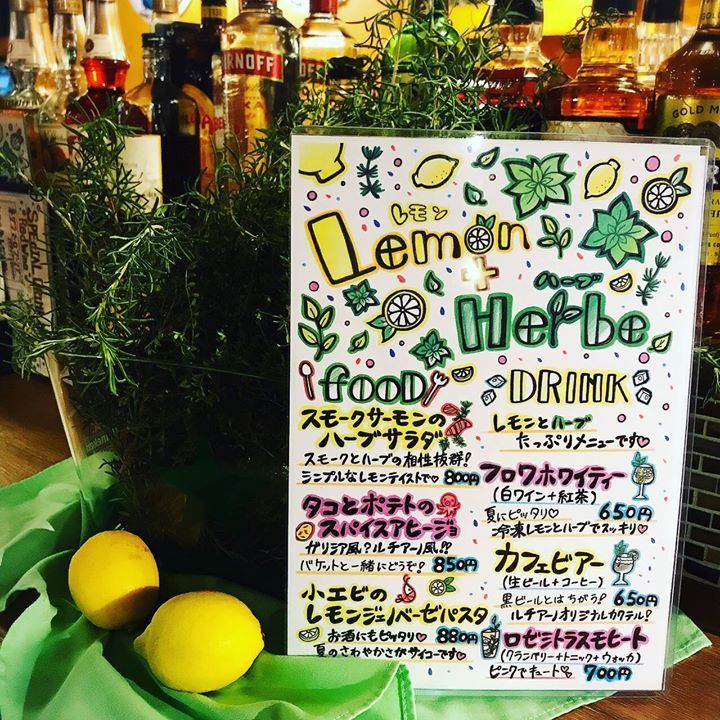 レモン
Lemon
+
ハーブ
Herbe
FOOD
スモークサーモンの
ハーブサラダ
スモークとハーブの相性抜群!
シンプルなレモンテイストで♡ 800円
タコとポテトの
スパイスアヒージョ
ガリシア風?ルチアーノ風!?
バケットと一緒にどうぞ! 850円
小エビの
レモンジェノベーゼパスタ
お酒にもピッタリ♡ 880円
夏のさわやかさがサイコーです♡
DRINK
レモンとハーブ
たっぷりメニューです♡
フロワホワイティー
(白ワイン+紅茶)
夏にピッタリ♡ 650円
冷凍レモンとハーブでスッキリ♡
カフェビアー
(生ビール+コーヒー)
黒ビールとはちがう! 650円
ルチアーノオリジナルカクテル!
ロゼシトラスモヒート
(クランベリー+トニック+ウォッカ)
ピンクでキュート♡ 700円
RNOFF
GOLD
SPECIAL